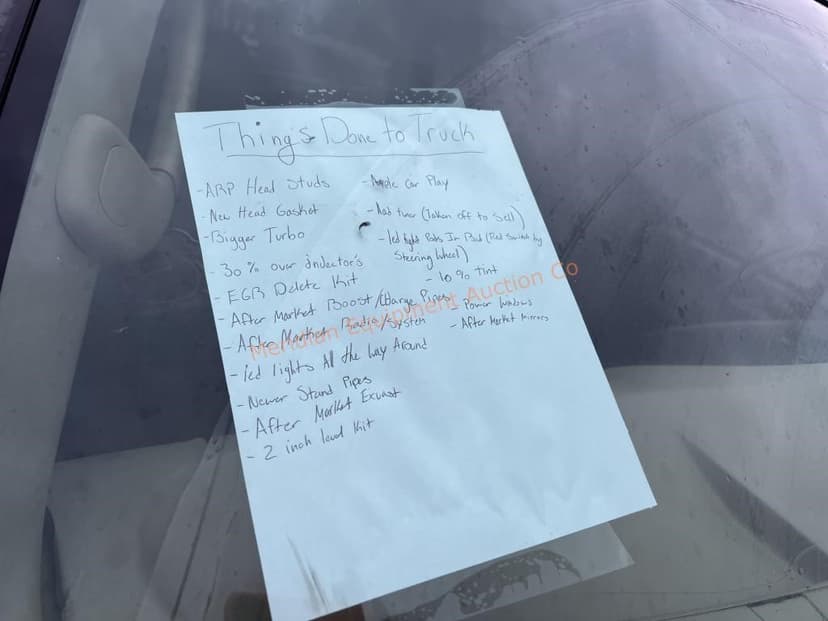 Things Done to Truck
- ARP Head Studs
- New Head Gasket
- Bigger Turbo
- 30% over indector's
- EGR Delete Kit
- After Market Boost/Charge Pipes
- After Market Radio/System
- led lights All the Way Around
- Newer Stand Pipes
- After Market Exuast
- 2 inch level Kit
- Apple Car Play
- Had tuner (Taken off to Sell)
- led light Pods In Bed (Red Switch by
Steering Wheel)
- 10% Tint
- Power Windows
- After Market Mirrors
Meridian Equipment Auction Co